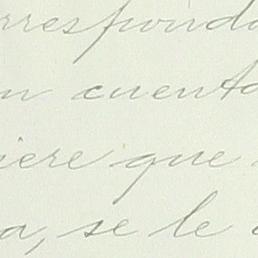 rrespond
n cuenta
iere que
a, se le